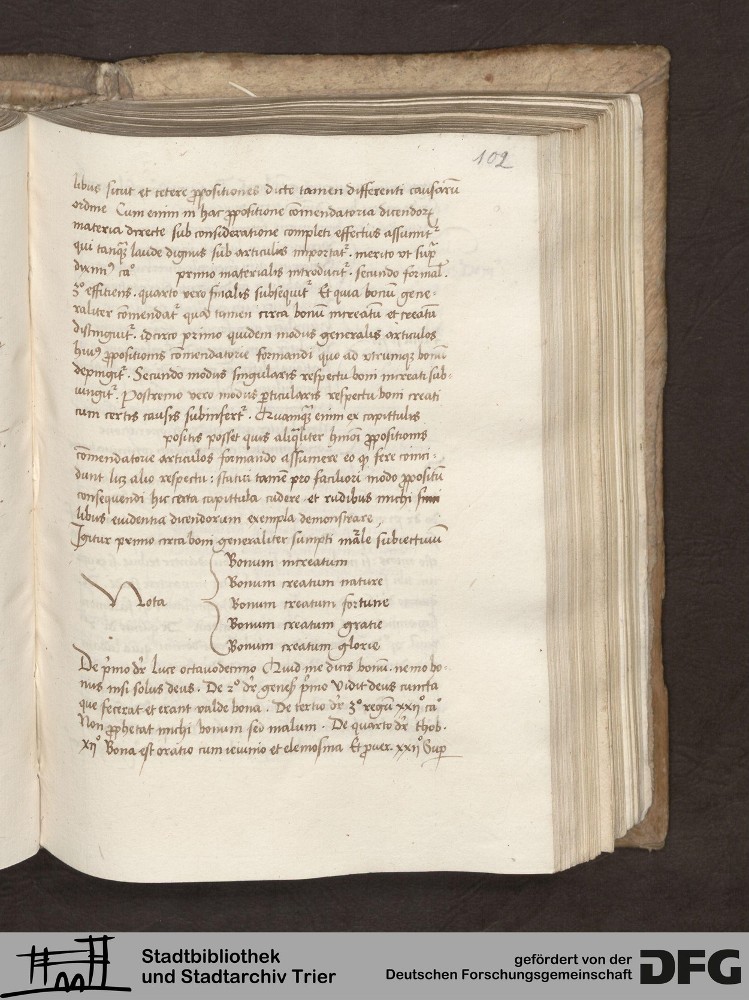 102
libus sicut et cetere ꝓpositiones dicte tamen differenti causarū
ordine Cum enim in hac ꝓpositione cōmendatoria dicendoꝝ
materia directe sub consideratione completi effectus assumit᷑
qui tanqꝫ laude dignus sub articulis importat᷑. merito vt supᷓ
diximꝰ caº primo materialis introducit᷑. secundo formal᷑.
3º efficiens. quarto vero finalis subsequit᷑ Et quia bonū gene-
raliter cōmendat᷑ quod tamen circa bonū increatū et creatū
distinguit᷑. idcirco primo quidem modus generalis articulos
huiꝰ ꝓpositionis cōmendatorie formandi quo ad vtrumqꝫ bonū
depingit᷑. Secundo modus singularis respectu boni increati sub-
iungit᷑. Postremo vero modus ꝑticularis respectu boni creati
cum certis causis subinfert᷑. Quamqꝫ enim ex capittulis
positis posset quis aliqͣliter hmōi ꝓpositionis
cōmendatorie articulos formando assumere eo ꝙ fere coinci-
dunt licꝫ alio respectu: statui tamē pro faciliori modo ꝓpositū
consequendi hic certa capittula cudere et rudibus michi simi
libus euidentia dicendorum exempla demonstrare,
Igitur primo circa boni generaliter sumpti māle subiectiuū
Bonum increatum
Bonum creatum nature
Nota Bonum creatum fortune
Bonum creatum gratie
Bonum creatum glorie
De pͥmo dr̄ Luce octauodecimo Quid me dicis bonū. nemo bo-
nus nisi solus deus. De 2º dr̄ geneẜ pͥmo Vidit deus cuncta
que fecerat et erant valde bona. De tertio dr̄ 3º regū xxijº caº
Non ꝓphetat michi bonum sed malum. De quarto dr̄ thob.
xijº Bona est oratio cum ieiunio et elemosina Et ꝓuer. xxijº Sup
Stadtbibliothek
und Stadtarchiv Trier
gefördert von der
Deutschen Forschungsgemeinschaft
DFG